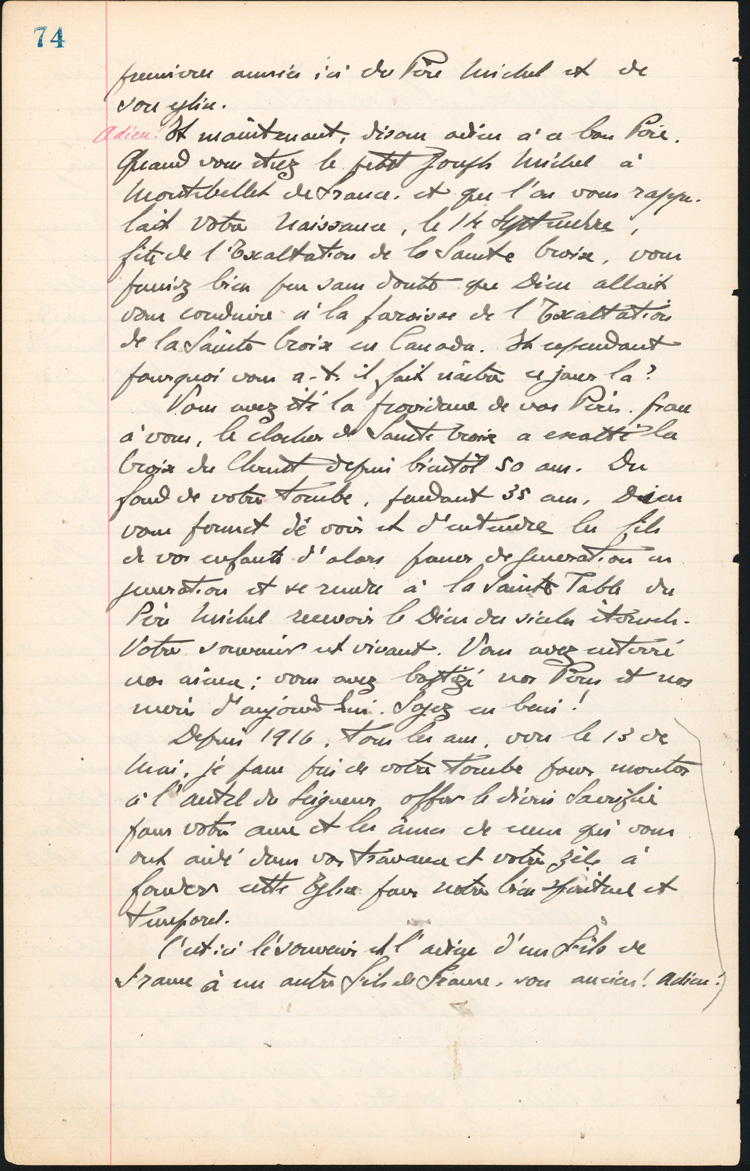 74
premières années ici du Père Michel et de
son église.
Adieu! Et maintenant, disons adieu à ce bon Père.
Quand vous étiez le petit Joseph Michel à
Montbellet de France. et que l'on vous rappe-
lait votre Naissance, le 14 Septembre,
fête de l'Exaltation de la Sainte Croix, vous
pensiez bien peu sans doute que Dieu allait
vous conduire à la paroisse de l'Exaltation
de la Sainte Croix en Canada. Et cependant
pourquoi vous a-t-il fait naître ce jour là?
Vous avez été la providence de nos Pères. grâce
à vous, le clocher de Sainte Croix a exalté la
Croix du Christ depuis bientôt 50 ans. Du
fond de votre tombe, pendant 35 ans, Dieu
vous permet de voir et d'entendre les fils
de vos enfants d'alors passer de generation en
generation et se rendre à la Sainte Table du
Père Michel recevoir le Dieu des siècles éternels.
Votre souvenir est vivant. Vous avez enterré
nos aïeux; vous avez baptizé nos Pères et nos
mères d'aujourd'hui. Soyez en beni!
Depuis 1916, tous les ans, vers le 13 de
Mai, je passe près de votre tombe pour monter
à l'autel du Seigneur offrir le divin Sacrifice
pour votre âme et les âmes de ceux qui vous
ont aidé dans vos travaux et votre zèle à
fonder cette Eglise pour notre bien spirituel et
temporel.
C'est ici le souvenir et l'adieu d'un Fils de
France à un autre fils de France, son ancien! Adieu!